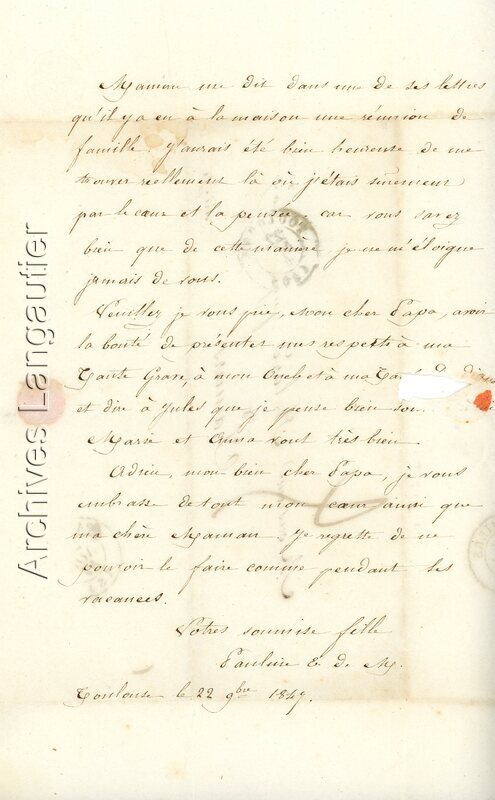 Maman me dit dans une de ses lettres
qu'il y a eu à la maison une réunion de
famille. J'aurais été bien heureuse de me
trouver réellement là où j'étais sûrement
par le cœur et la pensée, car vous savez
bien que de cette manière je ne m'éloigne
jamais de vous.
Veuillez je vous prie, mon cher Papa, avoir
la bonté de présenter mes respects à ma
Tante Grave, à mon Oncle et à ma
et dire à Jules que je pense bien
Marie et Anna vont très bien
Adieu, mon bien cher Papa, je vous
embrasse de tout mon cœur ainsi que
ma chère Maman. Je regrette de ne
pouvoir le faire comme pendant les
vacances.
Votre soumise fille
Pauline E de M.
Toulouse le 22 9bre 1847.
Archives Langautier